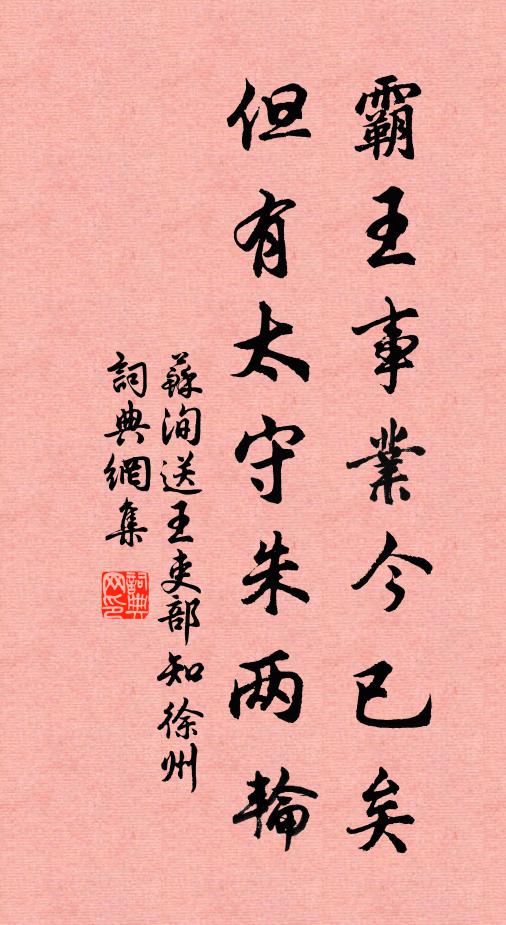 霸王事業今已矣
但有太守朱两輪
蘇洵送王吏部知徐州
詞典網集
詞典网印